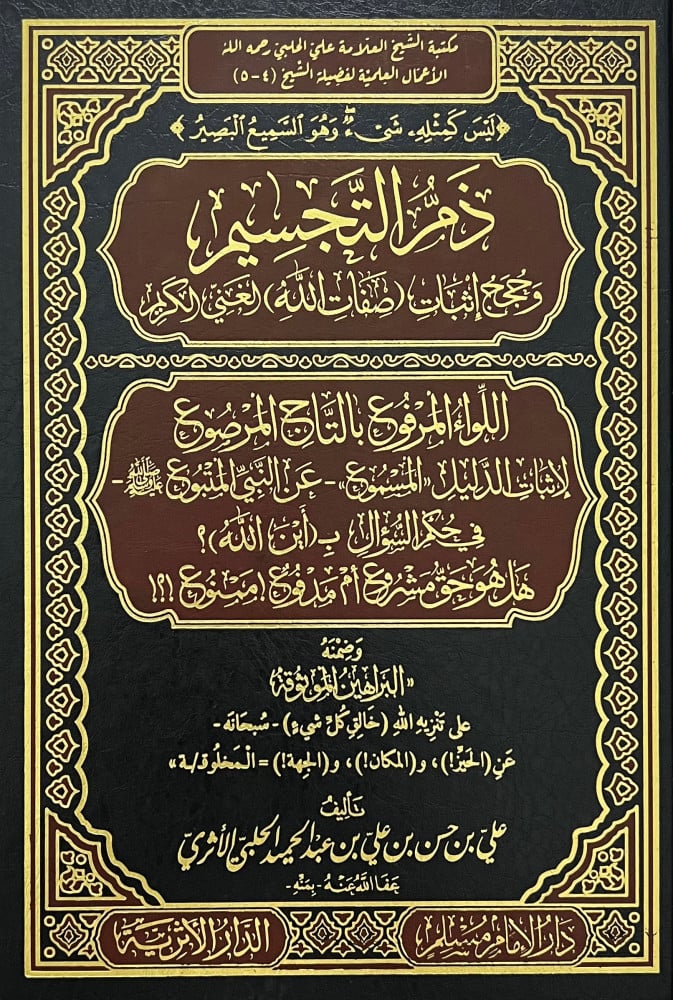 مكتبة الشيخ العلامة علي الحلبي رحمه الله
الأعمال العلمية لفضيلة الشيخ (٤-٥)
﴿لَيْسَ كَمِثْلِهِۦ شَىْءٌۖ وَهُوَ السَّمِيعُ الْبَصِيرُ﴾
ذَمُّ التَّجسِيمِ
وَحُجَجُ إثباتِ (صِفَاتِ اللَّهِ) الغَنيِّ الكَرِيمِ
اللِّواءُ المَرفُوع بالتَّاجِ المَرْصُوع
لإثباتِ الدَّليلِ «المَسْمُوع» - عَنِ النَّبيِّ المَتْبُوع ﷺ -
في حُكْمِ السُّؤالِ بـ(أَيْنَ اللَّهُ)؟
هَل هُوَ حَقٌّ مَشْرُوع أَمْ مَدْفُوعٌ! مَمْنُوع !؟!
وَضِمْنَهُ
«البَراهينُ المَوثُوقة
على تَنزِيهِ اللهِ (خَالِقِ كُلِّ شيءٍ) - سُبحانَه -
عَنِ (الحَيِّز!)، و(المكان!)، و(الجِهة!) = الْمَخلُوقـ/ـة»
تأليفُ
عليّ بن حسن بن عليّ بن عبد الحميد الحلبيّ الأثريّ
- عَفَا اللَّهُ عَنْهُ - بِمَنِّهِ -
دار الإمام مسلم
الدار الأثرية